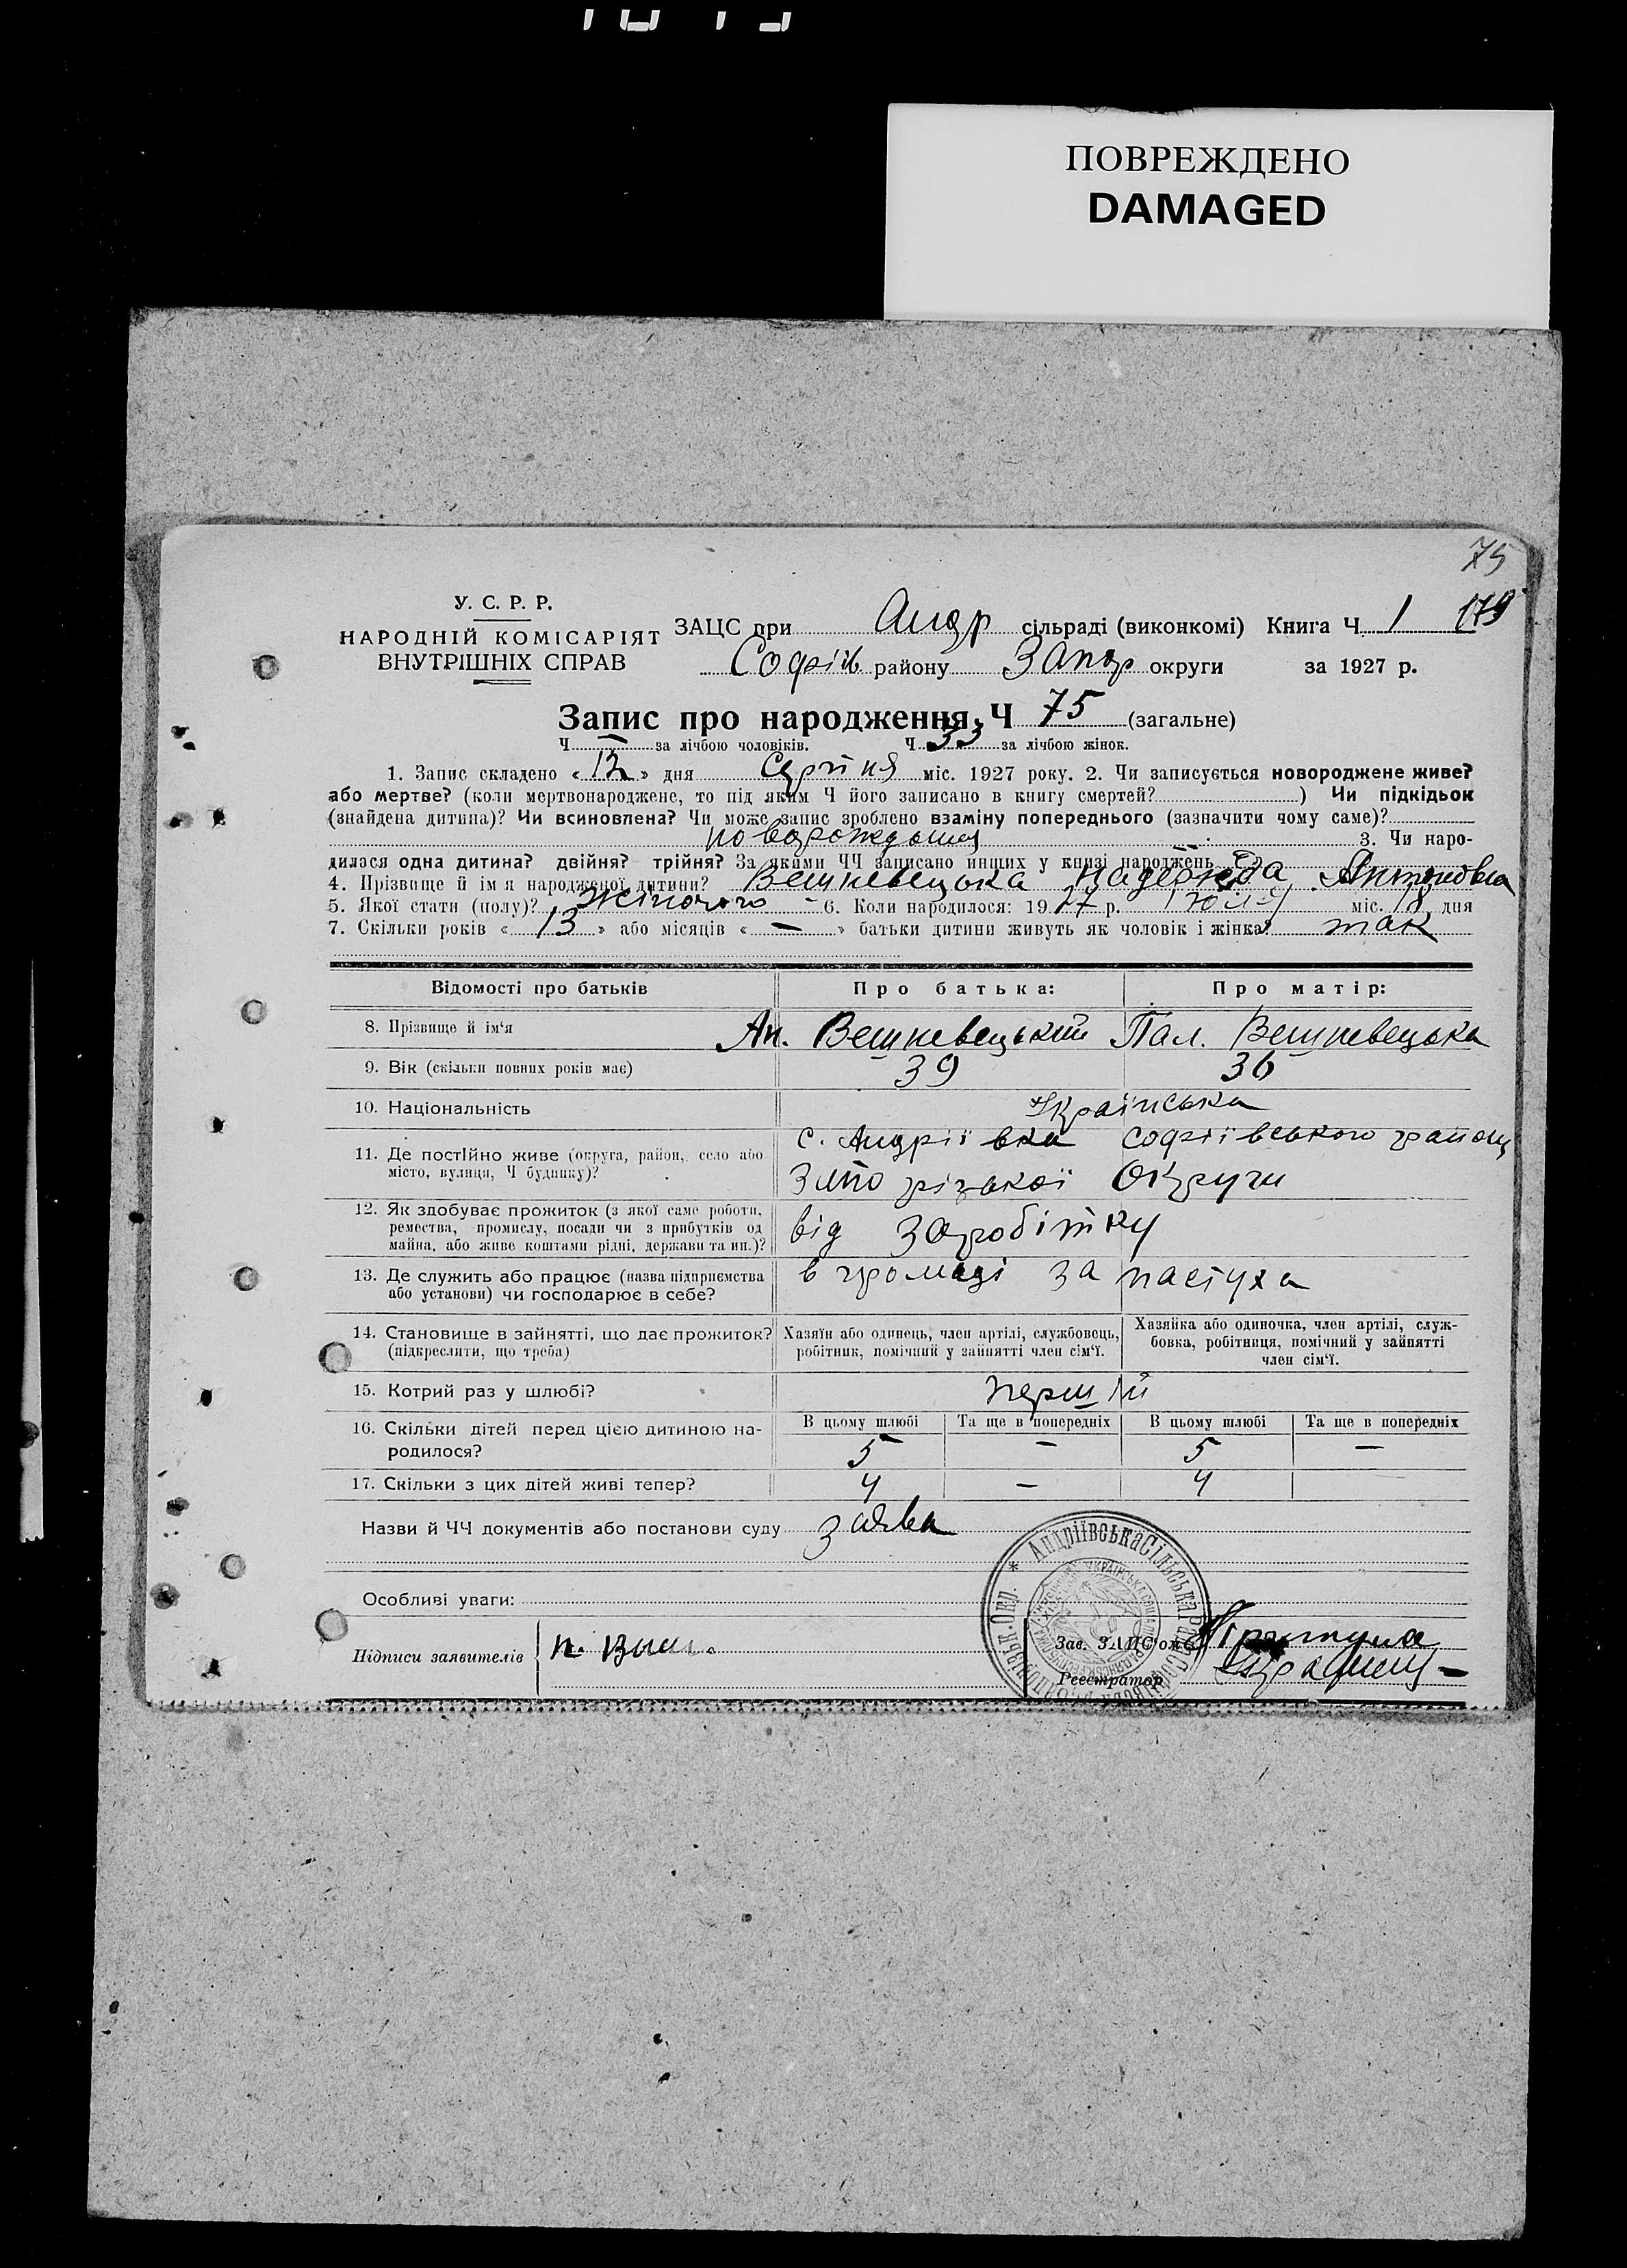 ПОВРЕЖДЕНО
DAMAGED
75
У. С. Р. Р.
НАРОДНІЙ КОМІСАРІЯТ
ВНУТРІШНІХ СПРАВ
ЗАЦС при Андр сільраді (виконкомі) Книга Ч. 1 179
Софіїв району Запор округи за 1927 р.
Запис про народження, Ч 75 (загальне)
Ч. — за лічбою чоловіків. Ч. 33 за лічбою жінок.
1. Запис складено « 12 » дня Серпня міс. 1927 року. 2. Чи записується новороджене живе?
або мертве? (коли мертвонароджене, то під яким Ч його записано в книгу смертей? ) Чи підкідьок
(знайдена дитина)? Чи всиновлена? Чи може запис зроблено взаміну попереднього (зазначити чому саме)?
3. Чи наро-
дилася одна дитина? двійня? трійня? За якими ЧЧ записано инших у книзі народжень
4. Прізвище й ім'я народженої дитини? Вешневецька Надежда Антоновна
5. Якої стати (полу)? Жіночого - 6. Коли народилося: 1927 р. Юля міс. 18 дня
7. Скільки років « 13 » або місяців « — » батьки дитини живуть як чоловік і жінка? так
Відомості про батьків
Про батька:
Про матір:
8. Прізвище й ім'я
Ан. Вешневецький
Пал. Вешневецька
9. Вік (скільки повних років має)
39
36
10. Національність
Українська
11. Де постійно живе (округа, район, село або
місто, вулиця, Ч будинку)?
с. Андріївка Софіївського району
Запорізької Округи
12. Як здобуває прожиток (з якої саме роботи,
ремества, промислу, посади чи з прибутків од
майна, або живе коштами рідні, держави та ин.)?
від заробітку
13. Де служить або працює (назва підприємства
або установи) чи господарює в себе?
в громаді за пастуха
14. Становище в зайнятті, що дає прожиток?
(підкреслити, що треба)
Хазяїн або одинець, член артілі, службовець,
робітник, помічний у зайнятті член сім'ї.
Хазяйка або одиночка, член артілі, служ-
бовка, робітниця, помічний у зайнятті
член сім'ї.
15. Котрий раз у шлюбі?
перший
16. Скільки дітей перед цією дитиною на-
родилося?
В цьому шлюбі
Та ще в попередніх
В цьому шлюбі
Та ще в попередніх
5 — 5 —
17. Скільки з цих дітей живі тепер?
4 — 4
Назви й ЧЧ документів або постанови суду заява
Особливі уваги:
Підписи заявителів
п. Виш.
Зав. ЗАЦС'ом
Реєстратор
Андріївська Сільська Рада